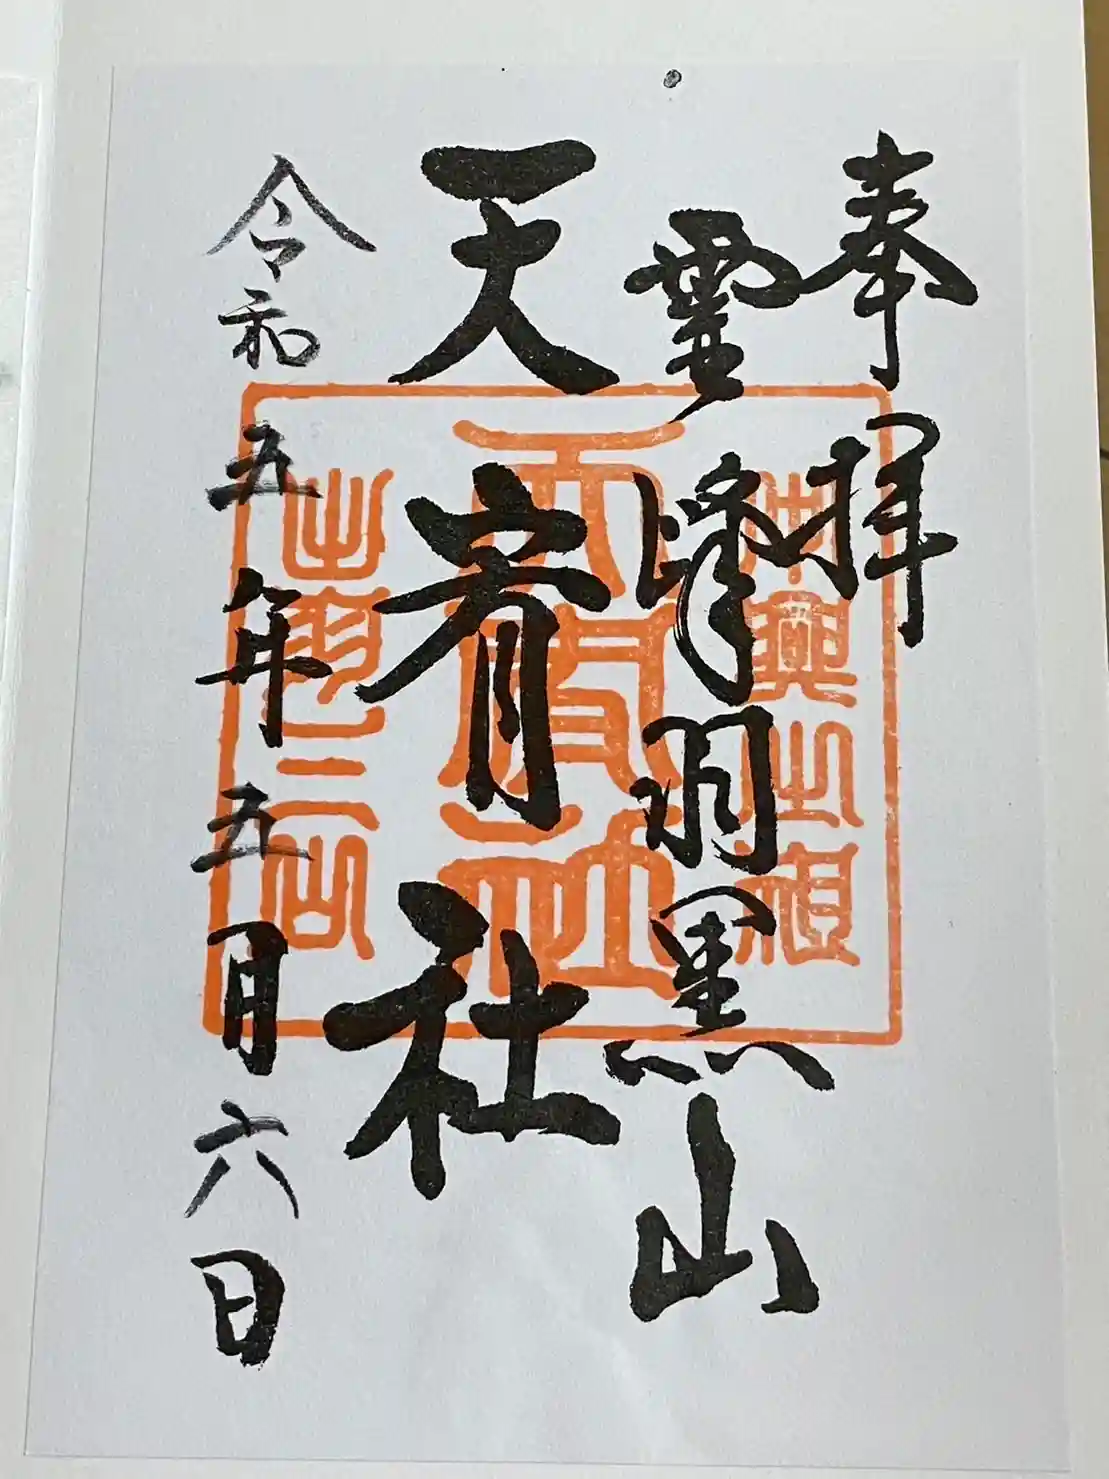 奉拝
霊峰羽黒山
天宥社
令和五年五月六日
中興之祖
天宥社
出羽三山